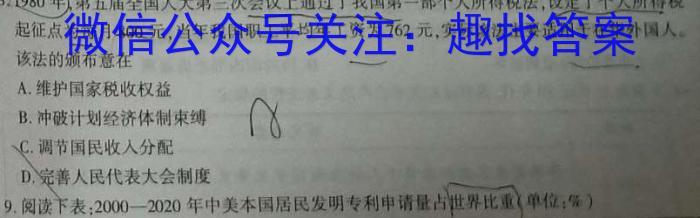 1980年,第五届全国人大第三次会议上通过了我国第一部个人所得税法,设定了个人所得税
起征点为每月800元,当年我国职工平均年工资为762元,实 在 外国人。
微信公众号关注：趣找答案
该法的颁布意在
A. 维护国家税收权益
B. 冲破计划经济体制束缚
C. 调节国民收入分配
D. 完善人民代表大会制度
9. 阅读下表:2000—2020 年中美本国居民发明专利申请量占世界比重(单位:%)